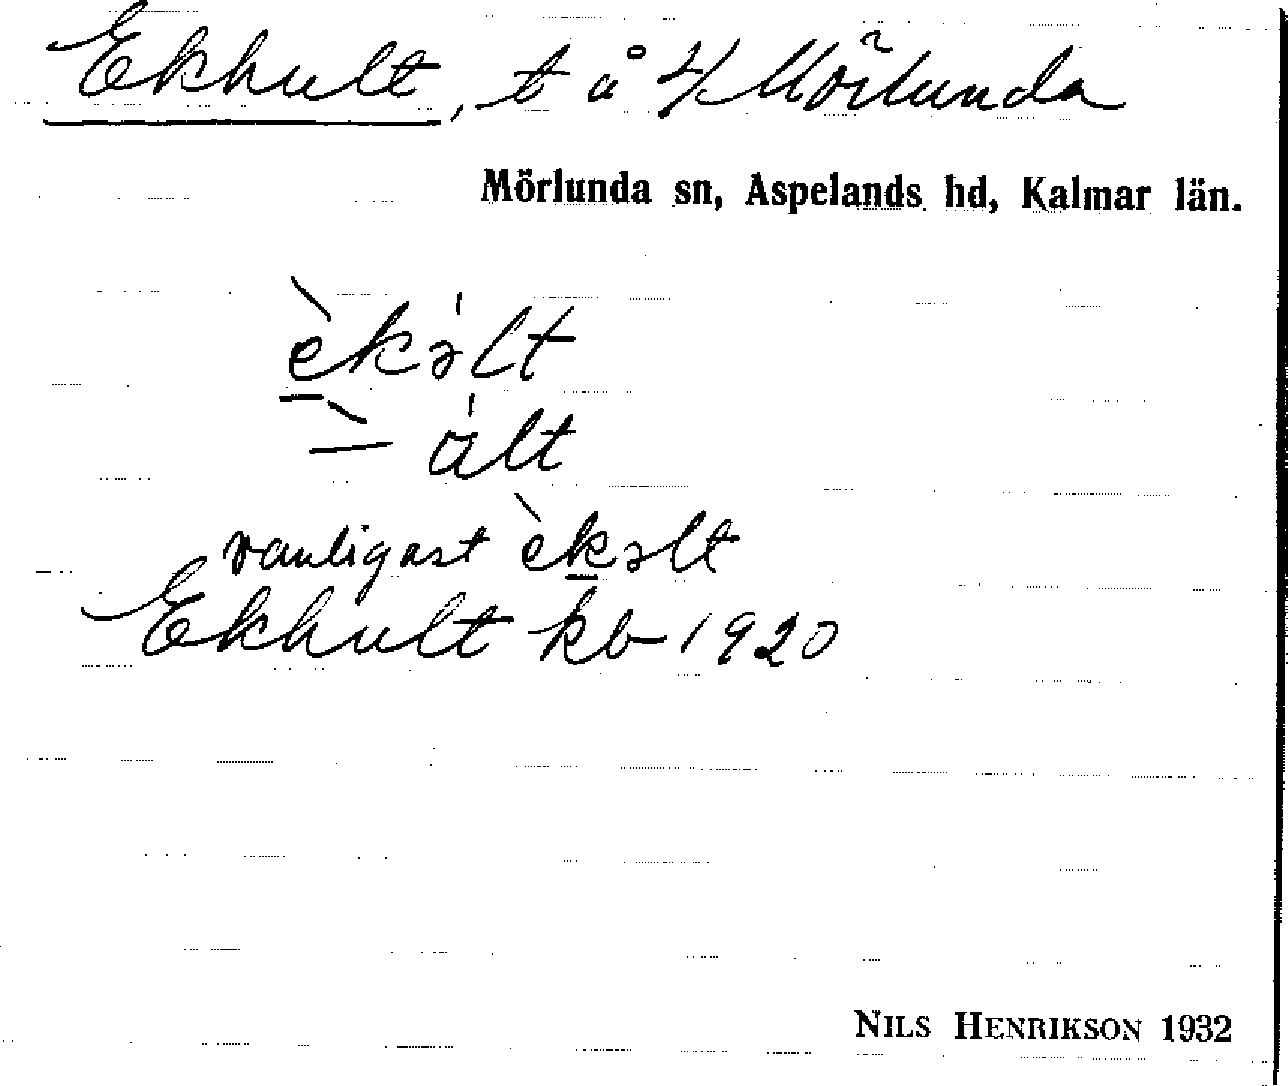 Ekhult, t å 4/ Mörlunda
Mörlunda sn, Aspelands hd, Kalmar län.
èkə̍lt
— a̍lt
vanligast èkəlt
Ekhult kb 1920
NILS HENRIKSON 1932